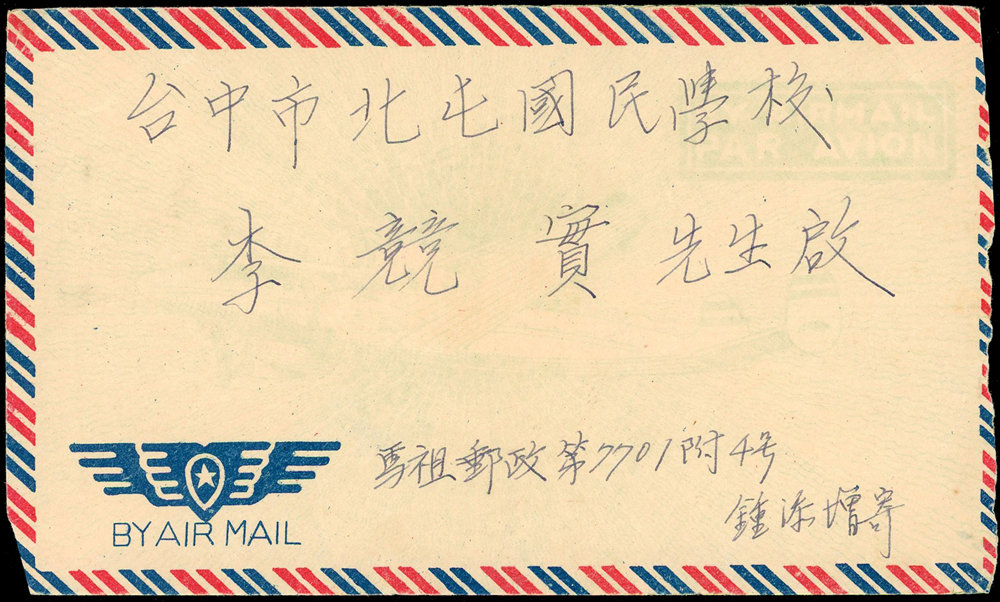 台中市北屯國民學校
AIR MAIL
PAR AVION
李競實先生啟
馬祖郵政第7701附4号
鍾添增寄
BY AIR MAIL